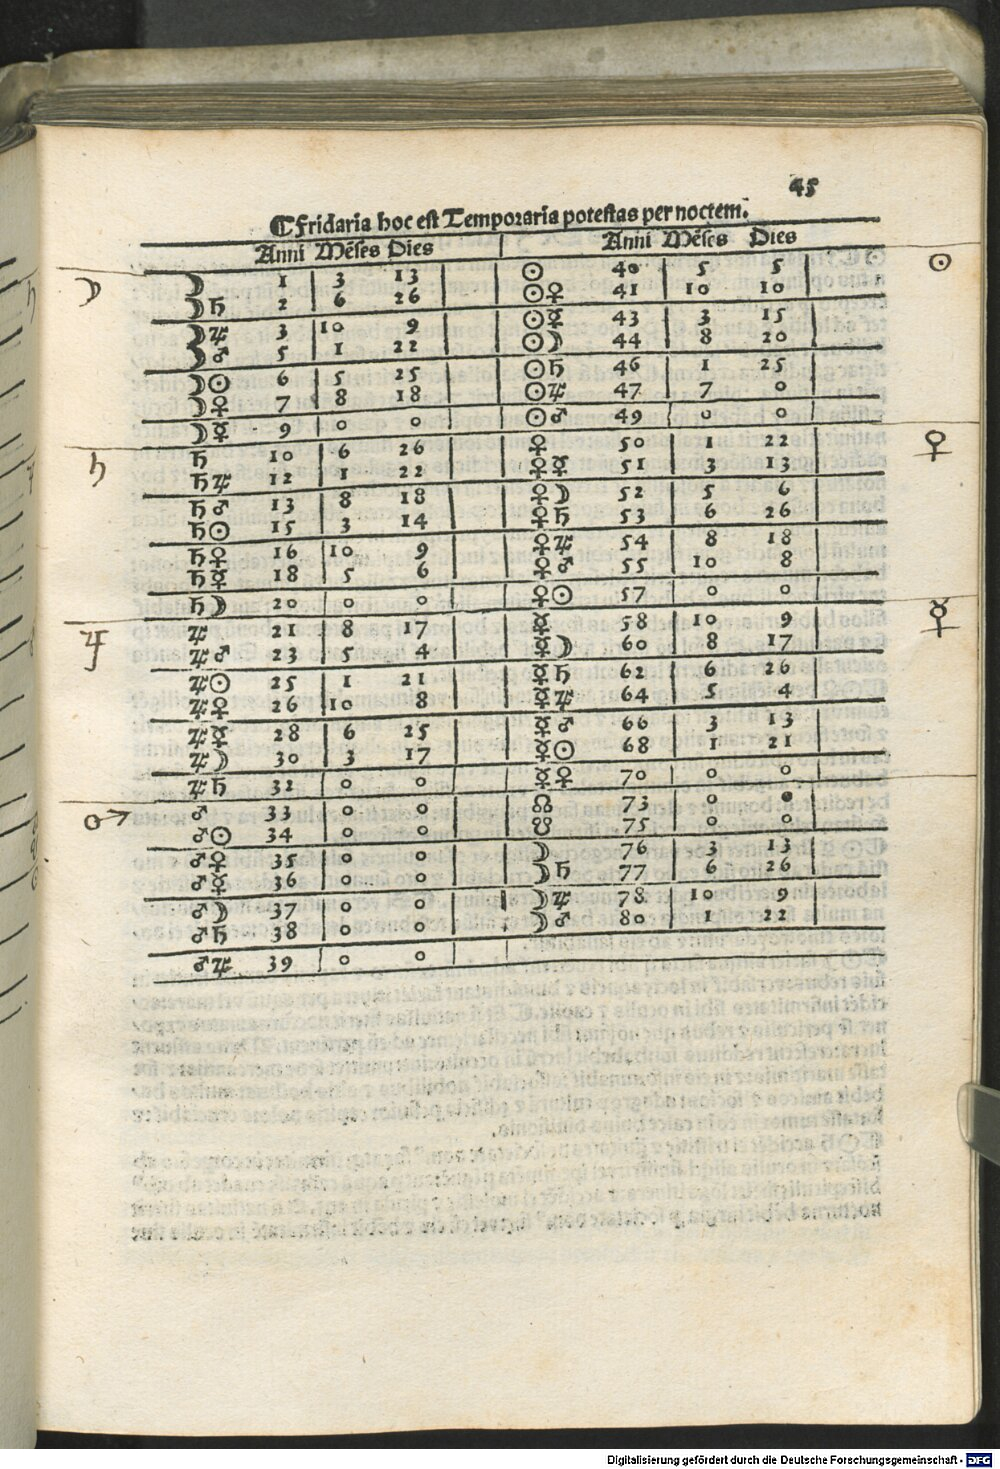 45
☾ Fridaria hoc est Temporaria potestas per noctem.
Anni Mēses Dies
☽ 1 3 13
☽♄ 2 6 26
☽♃ 3 10 9
☽♂ 5 1 22
☽☉ 6 5 25
☽♀ 7 8 18
☽☿ 9 0 0
♄ 10 6 26
♄♃ 12 1 22
♄♂ 13 8 18
♄☉ 15 3 14
♄♀ 16 10 9
♄☿ 18 5 6
♄☽ 20 0 0
♃ 21 8 17
♃♂ 23 5 4
♃☉ 25 1 21
♃♀ 26 10 8
♃☿ 28 6 25
♃☽ 30 3 17
♃♄ 32 0 0
♂ 33 0 0
♂☉ 34 0 0
♂♀ 35 0 0
♂☿ 36 0 0
♂☽ 37 0 0
♂♄ 38 0 0
♂♃ 39 0 0
Anni Mēses Dies
☉ 40 5 5
☉♀ 41 10 10
☉☿ 43 3 15
☉☽ 44 8 20
☉♄ 46 1 25
☉♃ 47 7 0
☉♂ 49 0 0
♀ 50 1 22
♀☿ 51 3 13
♀☽ 52 5 6
♀♄ 53 6 26
♀♃ 54 8 18
♀♂ 55 10 8
♀☉ 57 0 0
☿ 58 10 9
☿☽ 60 8 17
☿♄ 62 6 26
☿♃ 64 5 4
☿♂ 66 3 13
☿☉ 68 1 21
☿♀ 70 0 0
☊ 73 0 0
☋ 75 0 0
☽ 76 3 13
☽♄ 77 6 26
☽♃ 78 10 9
☽♂ 80 1 22
☽
♄
♃
♂
☉
♀
☿
Digitalisierung gefördert durch die Deutsche Forschungsgemeinschaft - DFG